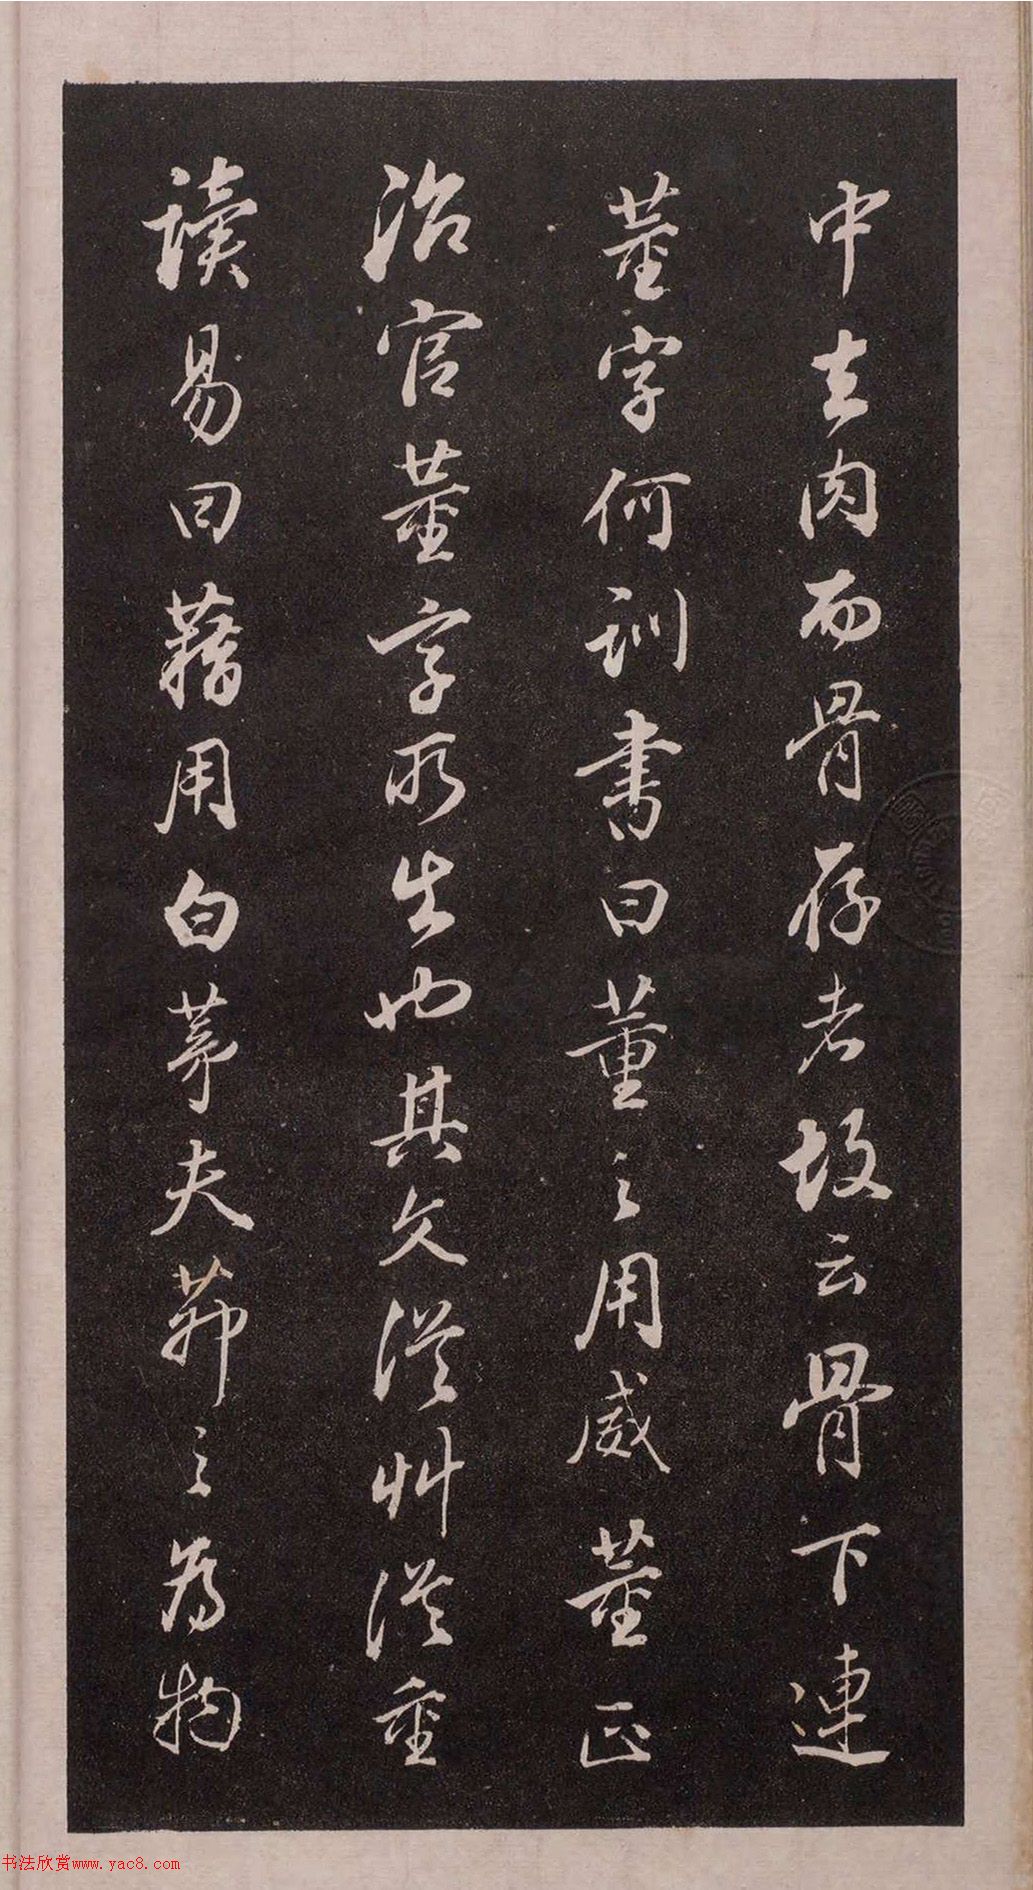 中去肉而骨存老故云骨下連
董字何訓書曰董之用威董正
治官董字所生也其文從艸從重
讀易曰藉用白茅夫茆之為物
书法欣赏www.yac8.com